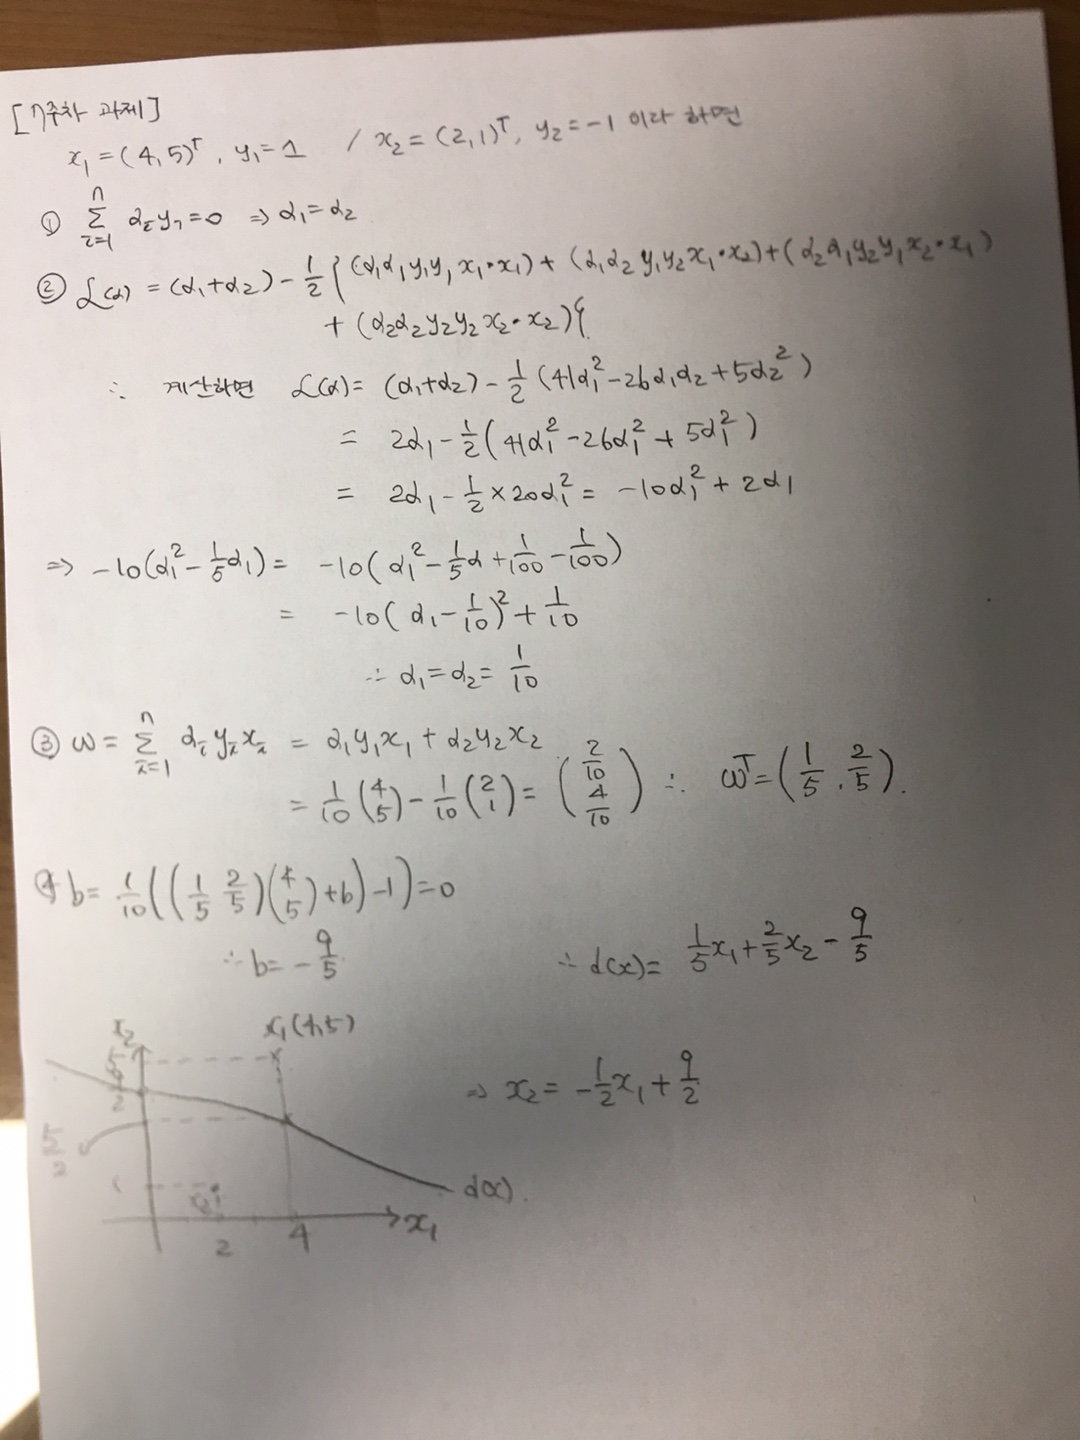 [7주차 과제]
x₁=(4,5)ᵀ, y₁=1 / x₂=(2,1)ᵀ, y₂=-1 이라 하면
① n Σ i=1 αᵢyᵢ=0 ⇒ α₁=α₂
② L(α) = (α₁+α₂) - 1/2 { (α₁α₁y₁y₁x₁•x₁) + (α₁α₂y₁y₂x₁•x₂) + (α₂α₁y₂y₁x₂•x₁)
+ (α₂α₂y₂y₂x₂•x₂) }
∴ 계산하면 L(α) = (α₁+α₂) - 1/2 (41α₁² - 26α₁α₂ + 5α₂²)
= 2α₁ - 1/2 (41α₁² - 26α₁² + 5α₁²)
= 2α₁ - 1/2 × 20α₁² = -10α₁² + 2α₁
⇒ -10(α₁² - 1/5 α₁) = -10(α₁² - 1/5 α + 1/100 - 1/100)
= -10(α₁ - 1/10)² + 1/10
∴ α₁=α₂= 1/10
③ ω = n Σ i=1 αᵢyᵢxᵢ = α₁y₁x₁ + α₂y₂x₂
= 1/10 (4 5) - 1/10 (2 1) = (2/10 4/10) ∴ ωᵀ = (1/5, 2/5).
④ b = 1/10 ((1/5 2/5)(4 5)+b)-1)=0
∴ b = -9/5
∴ d(x) = 1/5 x₁ + 2/5 x₂ - 9/5
⇒ x₂ = -1/2 x₁ + 9/2
x₂
x₁(4,5)
5
9/2
5/2
1
x₂
d(x).
2
4
x₁